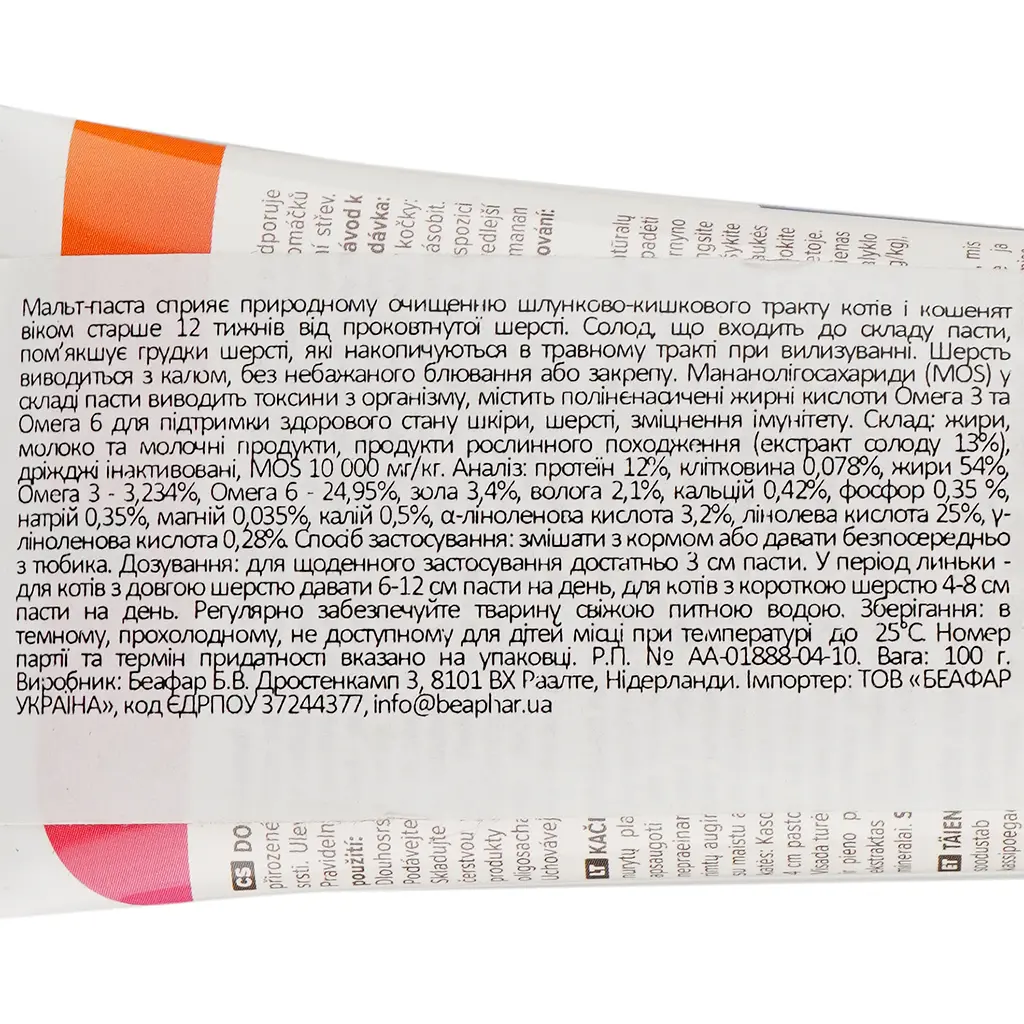 Мальт-паста сприяє природному очищенню шлунково-кишкового тракту котів і кошенят
віком старше 12 тижнів від проковтнутої шерсті. Солод, що входить до складу пасти,
пом’якшує грудки шерсті, які накопичуються в травному тракті при вилизуванні. Шерсть
виводиться з калом, без небажаного блювання або закрепу. Мананолігосахариди (MOS) у
складі пасти виводить токсини з організму, містить поліненасичені жирні кислоти Омега 3 та
Омега 6 для підтримки здорового стану шкіри, шерсті, зміцнення імунітету. Склад: жири,
молоко та молочні продукти, продукти рослинного походження (екстракт солоду 13%),
дріжджі інактивовані, MOS 10 000 мг/кг. Аналіз: протеїн 12%, клітковина 0,078%, жири 54%,
Омега 3 - 3,234%, Омега 6 - 24,95%, зола 3,4%, волога 2,1%, кальцій 0,42%, фосфор 0,35 %,
натрій 0,35%, магній 0,035%, калій 0,5%, α-ліноленова кислота 3,2%, лінолева кислота 25%, γ-
ліноленова кислота 0,28%. Спосіб застосування: змішати з кормом або давати безпосередньо
з тюбика. Дозування: для щоденного застосування достатньо 3 см пасти. У період линьки -
для котів з довгою шерстю давати 6-12 см пасти на день, для котів з короткою шерстю 4-8 см
пасти на день. Регулярно забезпечуйте тварину свіжою питною водою. Зберігання: в
темному, прохолодному, не доступному для дітей місці при температурі до 25°С. Номер
партії та термін придатності вказано на упаковці. Р.П. № АА-01888-04-10. Вага: 100 г.
Виробник: Беафар Б.В. Дростенкамп 3, 8101 ВХ Раалте, Нідерланди. Імпортер: ТОВ «БЕАФАР
УКРАЇНА», код ЄДРПОУ 37244377, info@beaphar.ua
CS DO
přirozené
srsti.
Pravideln
použití:
Dlouhosrs
Podávejte
Skladujte
čerstvou
produkty
oligosacha
Uchovávej
LT KAČI
nepraeinar
su maistu
4 cm pasto
mineralai.
TÄIEN
soodustab